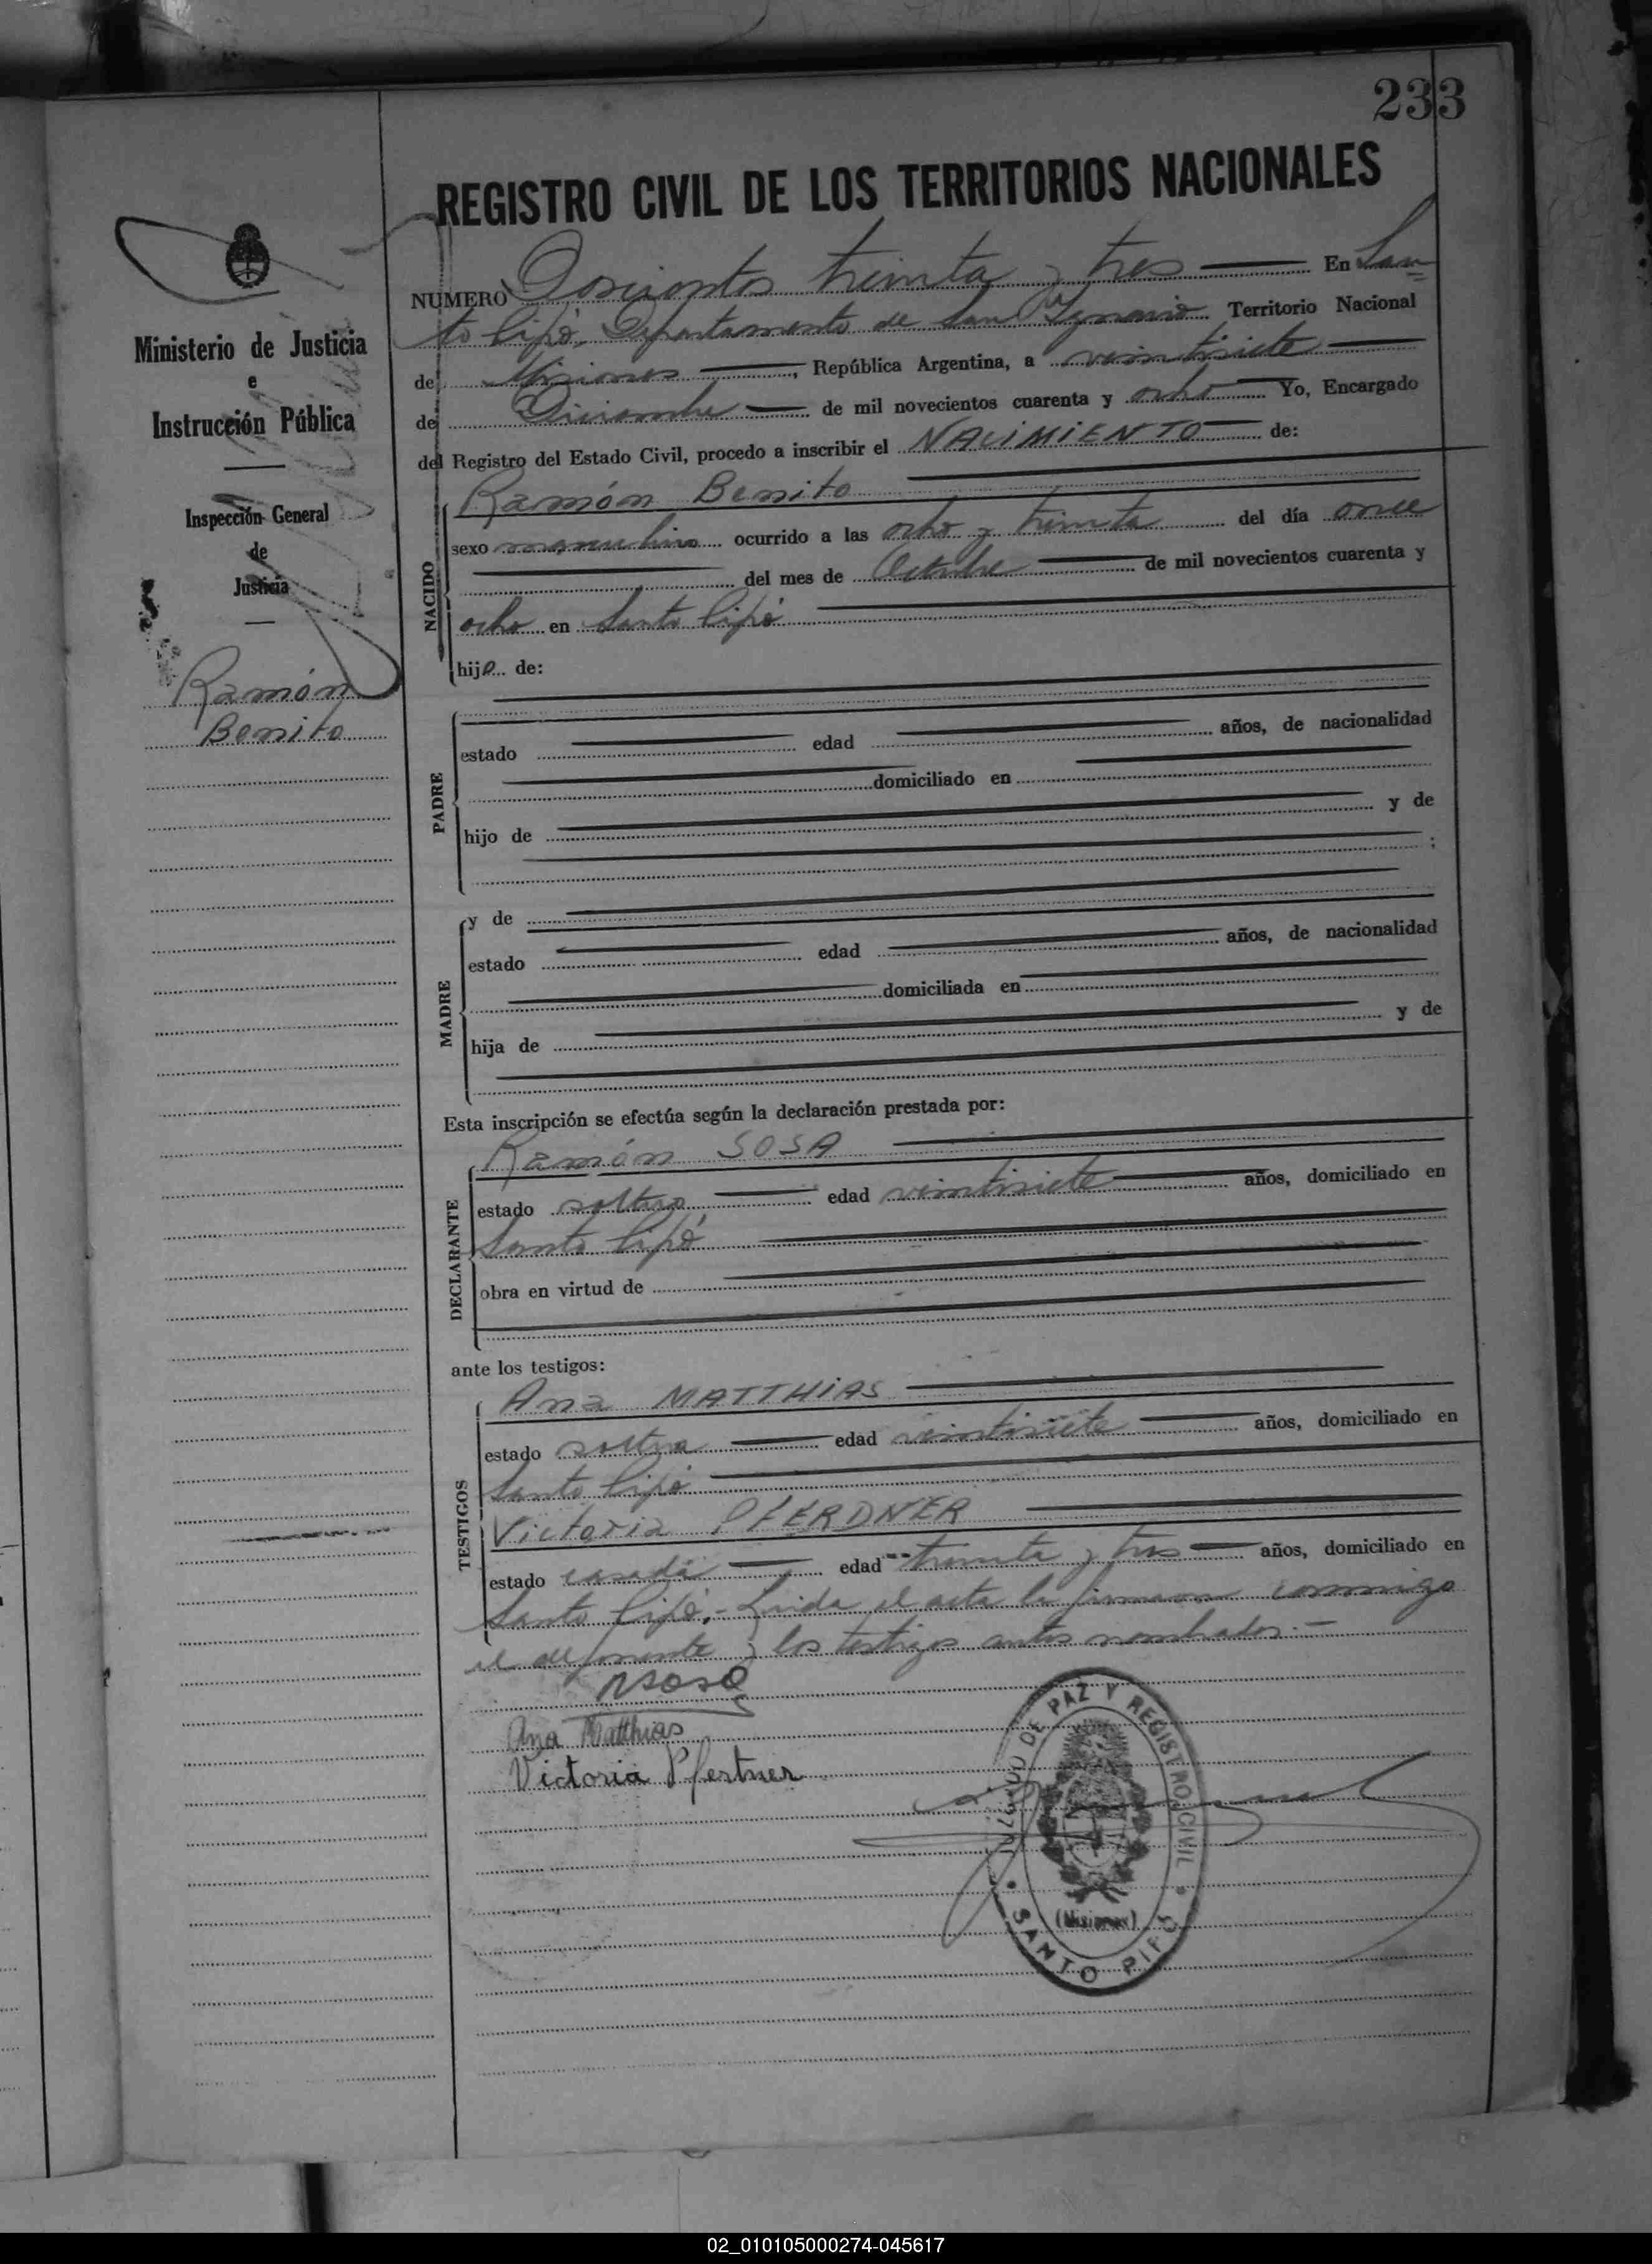 233
REGISTRO CIVIL DE LOS TERRITORIOS NACIONALES
NUMERO Doscientos treinta y tres En San
to Pipó, Departamento de San Ignacio Territorio Nacional
de Misiones, República Argentina, a veintisiete
de Diciembre de mil novecientos cuarenta y ocho Yo, Encargado
del Registro del Estado Civil, procedo a inscribir el NACIMIENTO de:
Ramón Benito
sexo masculino ocurrido a las ocho y treinta del día once
del mes de Octubre de mil novecientos cuarenta y
ocho en Santo Pipó
hijo de:
NACIDO
estado edad años, de nacionalidad
domiciliado en
hijo de y de
;
PADRE
y de
estado edad años, de nacionalidad
domiciliada en
hija de y de
MADRE
Esta inscripción se efectúa según la declaración prestada por:
Ramón SOSA
estado soltero edad veintisiete años, domiciliado en
Santo Pipó
obra en virtud de
DECLARANTE
ante los testigos:
Ana MATTHIAS
estado soltera edad veintisiete años, domiciliado en
Santo Pipó
Victoria PFERDNER
estado casada edad treinta y tres años, domiciliado en
Santo Pipó.- Leida el acta la firmaron conmigo
el deponente y los testigos antes nombrados.-
TESTIGOS
RSosa
Ana Matthias
Victoria Pfertner
JUZGADO DE PAZ Y REGISTRO CIVIL
(Misiones)
SANTO PIPO
Ministerio de Justicia
e
Instrucción Pública
Inspección General
de
Justicia
Ramón
Benito
02_010105000274-045617